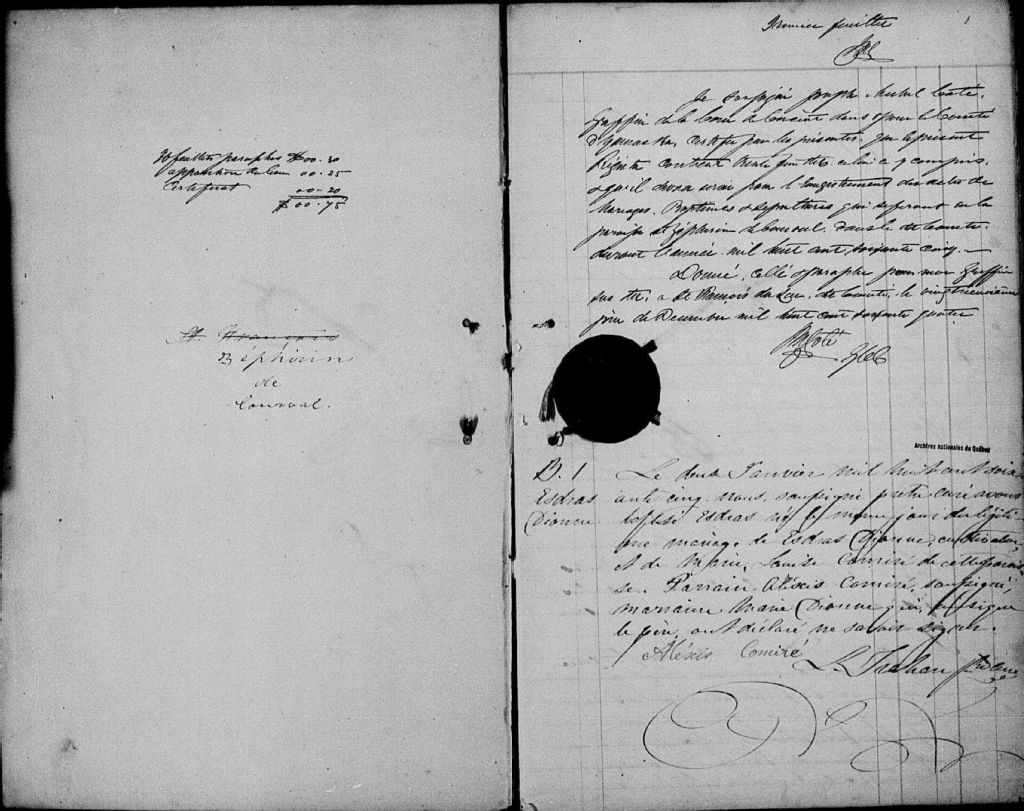 30 feuillets paraphés $00-30
apposition du sceau 00-25
Certificat 00-20
$00-75
St. François
Zéphirin
de
Courval.
Premier feuillet
1
Je soussigné Joseph Michel Coté,
Greffier de la Cour de Circuit dans & pour le Comté
d'Yamaska, certifie par les présentes, que le présent
Régistre contient trente feuillets celui ci y compris,
& qu'il devra servir pour l'Enregistrement des actes de
Mariages, Baptêmes & Sepultures qui se feront en la
paroisse St Zéphirin de Courval, dans le dit Comté,
durant l'année mil huit cent soixante cinq.—
Donné, cellé & paraphé par moi Greffier
sus dit, a St François du Lac, dit Comté, le vingt
jour de Décembre mil huit cent soixante quatre
JM Coté
GCC
Archives nationales du Québec
B. 1
Esdras
Dionne
Le deux Janvier mil huit cent soix
ante cinq nous, soussigné prêtre curé avons
baptisé Esdras né le même jour du légiti
me mariage de Esdras Dionne, cultivateur,
et de Marie Louise Comiré de cette parois
se. Parrain Aléxis Comiré, soussigné,
marraine Marie Dionne qui, ainsi que
le père, ont déclaré ne savoir signer.
Aléxis Comiré
L. Trahan Ptre Curé